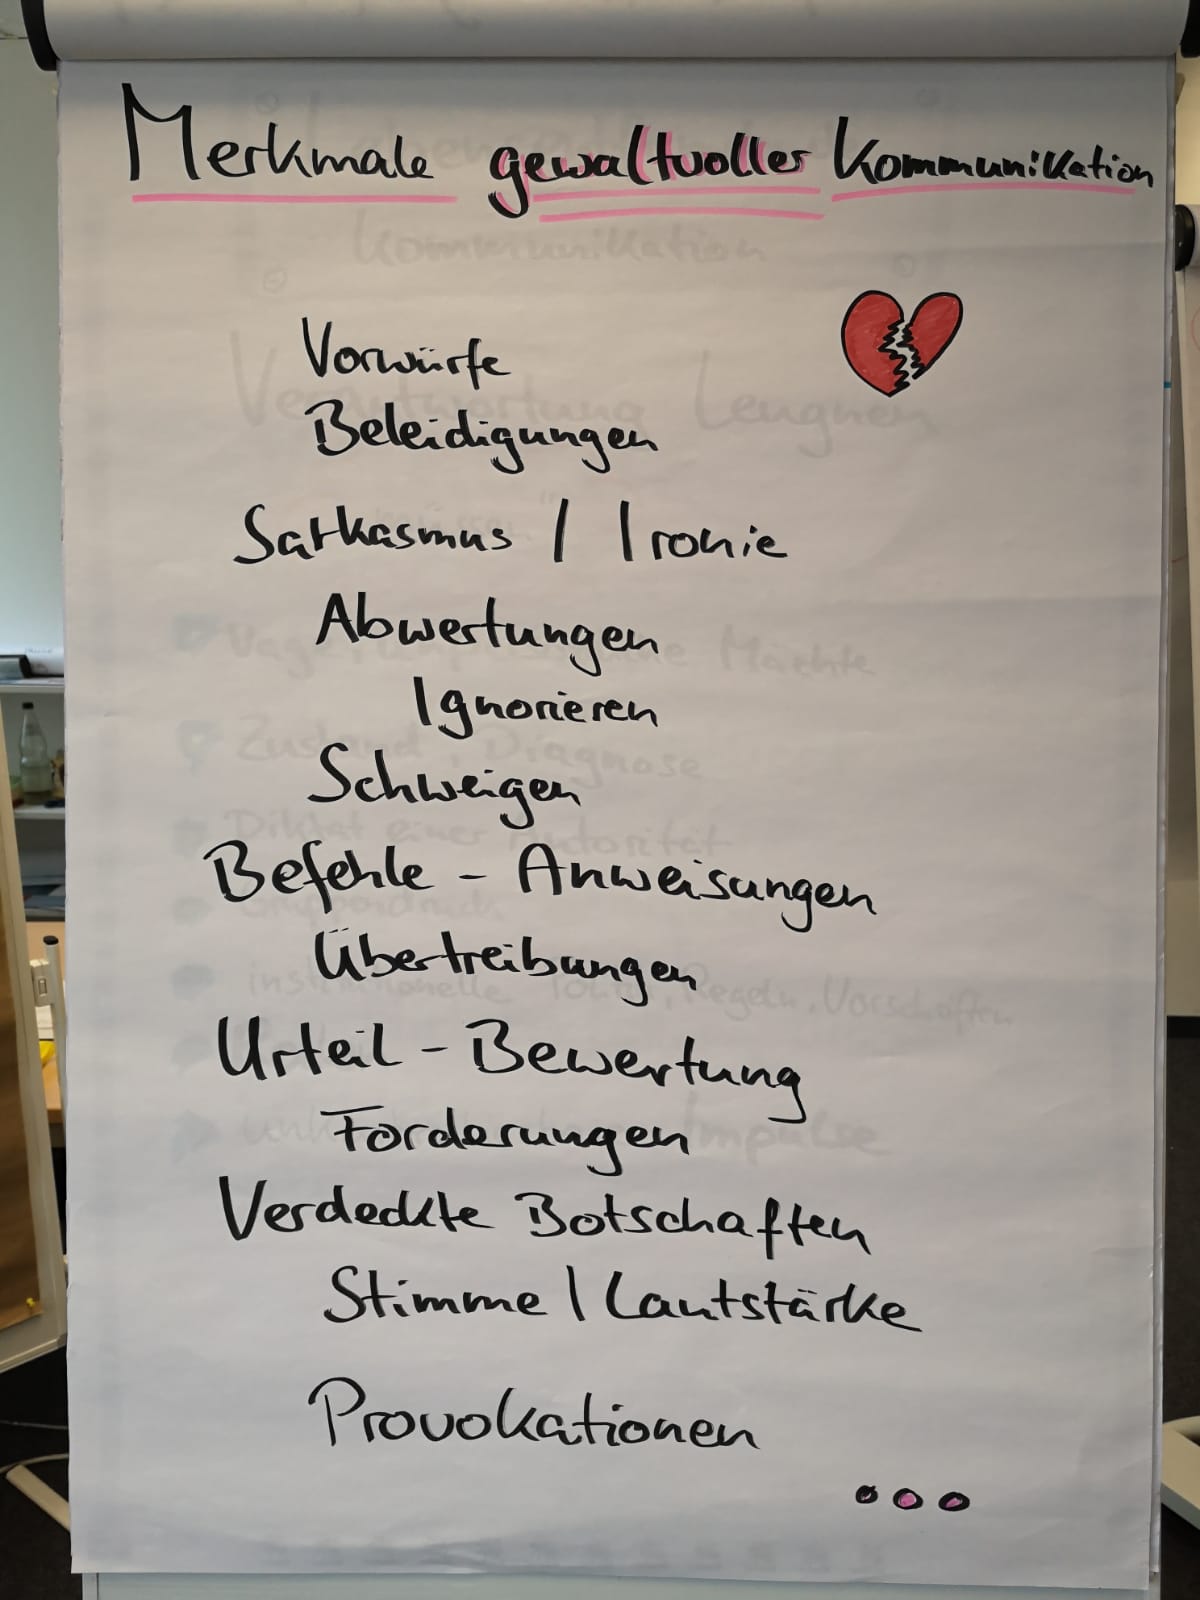 Merkmale gewaltvoller Kommunikation
Vorwürfe
Beleidigungen
Sarkasmus / Ironie
Abwertungen
Ignorieren
Schweigen
Befehle - Anweisungen
Übertreibungen
Urteil - Bewertung
Forderungen
Verdeckte Botschaften
Stimme / Lautstärke
Provokationen
...